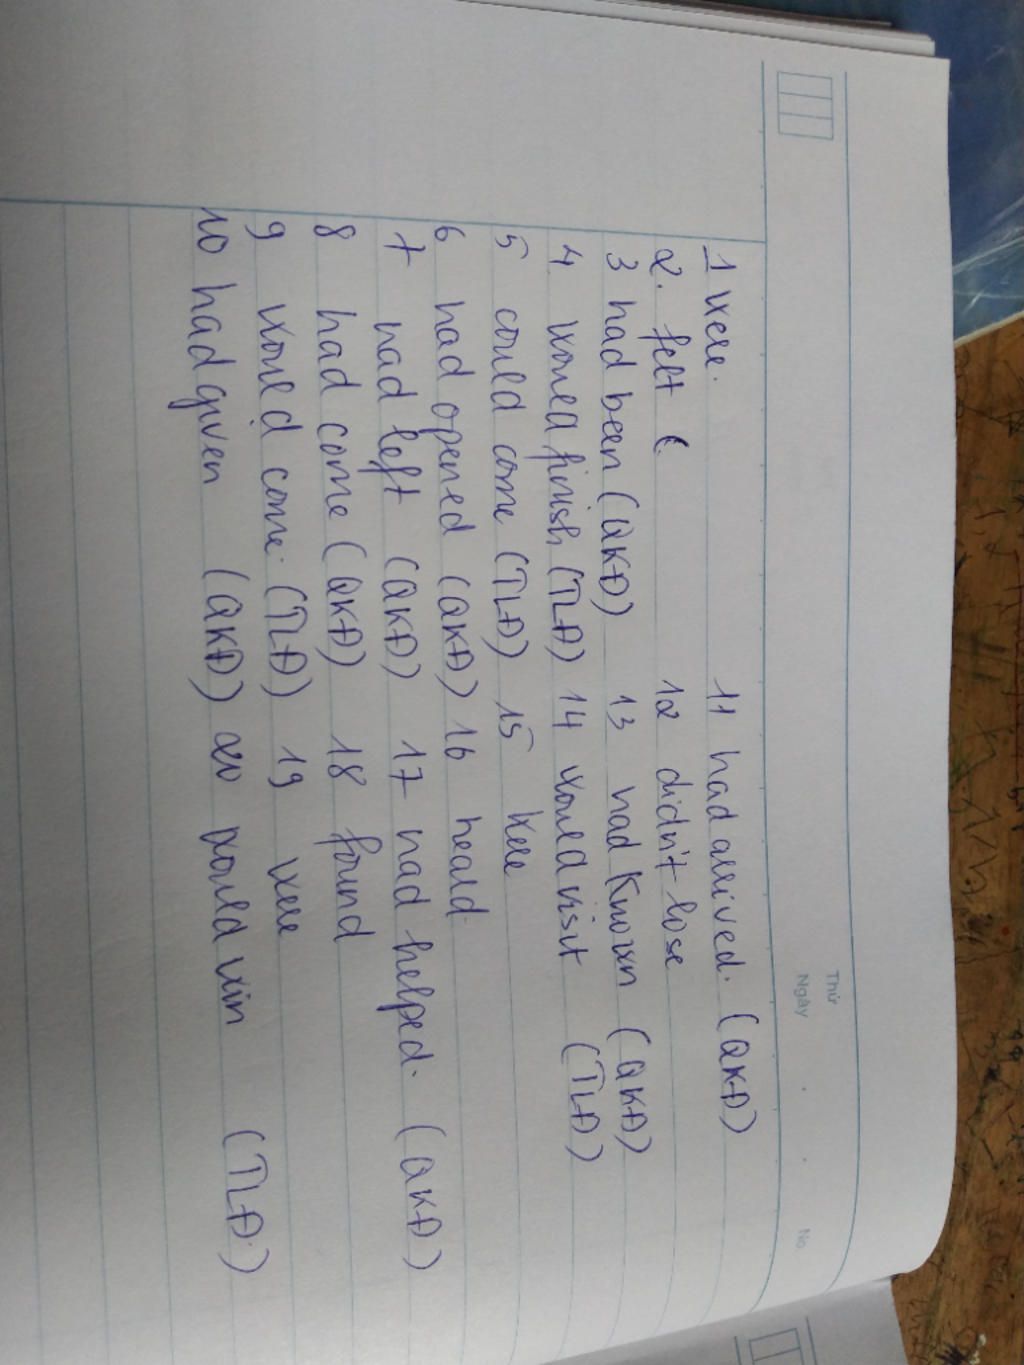 Thứ
Ngày No
1 were. 11 had arrived. (QKĐ)
2. felt ( 12 didn't lose
3 had been (QKĐ) 13 had known (QKĐ)
4 would finish (TLĐ) 14 would visit (TLĐ)
5 could come (TLĐ) 15 were
6 had opened (QKĐ) 16 heald.
7 had left (QKĐ) 17 had helped. (QKĐ)
8 had come (QKĐ) 18 found
9 would come. (TLĐ) 19 were
10 had given (QKĐ) 20 would win (TLĐ)